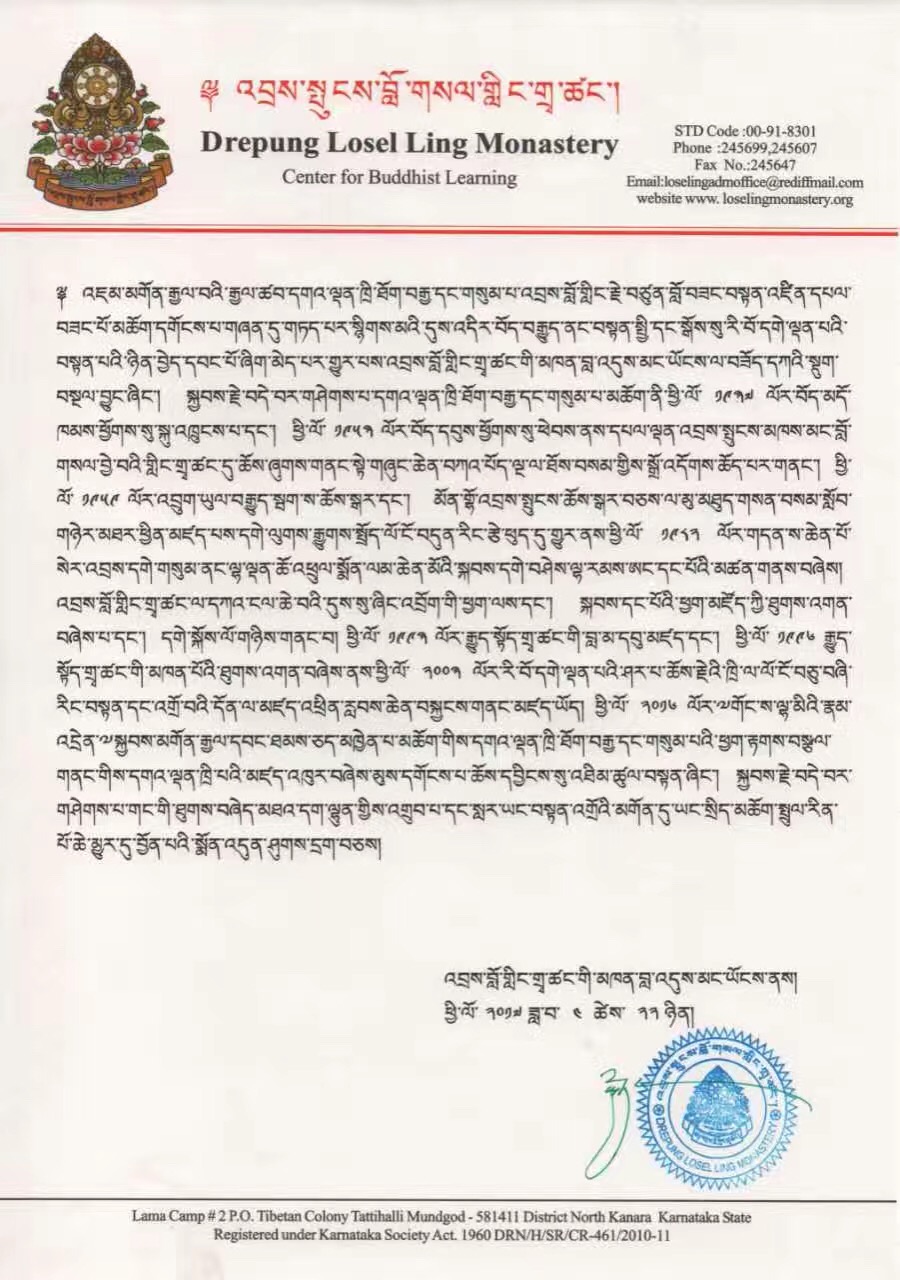 ༄ འབྲས་སྤུངས་བློ་གསལ་གླིང་གྲྭ་ཚང་།
Drepung Losel Ling Monastery
Center for Buddhist Learning
STD Code :00-91-8301
Phone :245699,245607
Fax No.:245647
Email:loselingadmoffice@rediffmail.com
website www. loselingmonastery.org
༄ འཇམ་མགོན་རྒྱལ་བའི་རྒྱལ་ཚབ་དགའ་ལྡན་ཁྲི་ཐོག་བརྒྱ་དང་གསུམ་པ་འབྲས་བློ་གླིང་རྗེ་བཙུན་བློ་བཟང་བསྟན་འཛིན་དཔལ་
བཟང་པོ་མཆོག་དགོངས་པ་གཞན་དུ་གཏད་པར་སྙིགས་མའི་དུས་འདིར་བོད་བརྒྱུད་ནང་བསྟན་སྤྱི་དང་སྒོས་སུ་རི་བོ་དགེ་ལྡན་པའི་
བསྟན་པའི་ཉིན་བྱེད་དབང་པོ་ཞིག་མེད་པར་གྱུར་པས་འབྲས་བློ་གླིང་གྲྭ་ཚང་གི་མཁན་བླ་འདུས་མང་ཡོངས་ལ་བཟོད་དཀའི་སྡུག་
བསྔལ་བྱུང་ཞིང་། སྐྱབས་རྗེ་བདེ་བར་གཤེགས་པ་དགའ་ལྡན་ཁྲི་ཐོག་བརྒྱ་དང་གསུམ་པ་མཆོག་ནི་ཕྱི་ལོ་ ༡༩༣༧ ལོར་བོད་མདོ་
ཁམས་ཕྱོགས་སུ་སྐུ་འཁྲུངས་པ་དང་། ཕྱི་ལོ་ ༡༩༥༣ ལོར་བོད་དབུས་ཕྱོགས་སུ་ཕེབས་ནས་དཔལ་ལྡན་འབྲས་སྤུངས་མཁས་མང་བློ་
གསལ་བྱེ་བའི་གླིང་གྲྭ་ཚང་དུ་ཆོས་ཞུགས་གནང་སྟེ་གཞུང་ཆེན་བཀའ་པོད་ལྔ་ལ་ཐོས་བསམ་གྱིས་སྒྲོ་འདོགས་ཆོད་པར་གནང་། ཕྱི་
ལོ་ ༡༩༥༩ ལོར་འབྲུག་ཡུལ་བརྒྱུད་སྦག་ས་ཆོས་སྒར་དང་། མོན་གྷོ་འབྲས་སྤུངས་ཆོས་སྒར་བཅས་ལ་མུ་མཐུད་གསན་བསམ་སློབ་
གཉེར་མཐར་ཕྱིན་མཛད་པས་དགེ་ལུགས་རྒྱུགས་སྤྲོད་ལོ་ངོ་བདུན་རིང་རྩེ་ཕུད་དུ་གྱུར་ནས་ཕྱི་ལོ་ ༡༩༨༣ ལོར་གདན་ས་ཆེན་པོ་
སེར་འབྲས་དགེ་གསུམ་ནང་ལྷ་ལྡན་ཆོ་འཕྲུལ་སྨོན་ལམ་ཆེན་མོའི་སྐབས་དགེ་བཤེས་ལྷ་རམས་ཨང་དང་པོའི་མཚན་གནས་བཞེས།
འབྲས་བློ་གླིང་གྲྭ་ཚང་ལ་དཀའ་ངལ་ཆེ་བའི་དུས་སུ་ཞིང་འབྲོག་གི་ཕྱག་ལས་དང་། སྐབས་དང་པོའི་ཕྱག་མཛོད་ཀྱི་ཐུགས་འགན་
བཞེས་པ་དང་། དགེ་སྐོས་ལོ་གཉིས་གནང་བ། ཕྱི་ལོ་ ༡༩༩༡ ལོར་རྒྱུད་སྟོད་གྲྭ་ཚང་གི་བླ་མ་དབུ་མཛད་དང་། ཕྱི་ལོ་ ༡༩༩༦ རྒྱུད་
སྟོད་གྲྭ་ཚང་གི་མཁན་པོའི་ཐུགས་འགན་བཞེས་ནས་ཕྱི་ལོ་ ༢༠༠༣ ལོར་རི་བོ་དགེ་ལྡན་པའི་ཤར་པ་ཆོས་རྗེའི་ཁྲི་ལ་ལོ་ངོ་བཅུ་བཞི་
རིང་བསྟན་དང་འགྲོ་བའི་དོན་ལ་མཛད་འཕྲིན་རླབས་ཆེན་བསྐྱངས་གནང་མཛད་ཡོད། ཕྱི་ལོ་ ༢༠༡༦ ལོར་༧གོང་ས་ལྷ་མིའི་རྣམ་
འདྲེན་༧སྐྱབས་མགོན་རྒྱལ་དབང་ཐམས་ཅད་མཁྱེན་པ་མཆོག་གིས་དགའ་ལྡན་ཁྲི་ཐོག་བརྒྱ་དང་གསུམ་པའི་ཕྱག་རྟགས་བསྩལ་
གནང་གིས་དགའ་ལྡན་ཁྲི་པའི་མཛད་འཁུར་བཞེས་མུས་དགོངས་པ་ཆོས་དབྱིངས་སུ་འཐིམ་ཚུལ་བསྟན་ཞིང་། སྐྱབས་རྗེ་བདེ་བར་
གཤེགས་པ་གང་གི་ཐུགས་བཞེད་མཐའ་དག་ལྷུན་གྱིས་འགྲུབ་པ་དང་སླར་ཡང་བསྟན་འགྲོའི་མགོན་དུ་ཡང་སྲིད་མཆོག་སྤྲུལ་རིན་
པོ་ཆེ་མྱུར་དུ་བྱོན་པའི་སྨོན་འདུན་ཤུགས་དྲག་བཅས།
འབྲས་བློ་གླིང་གྲྭ་ཚང་གི་མཁན་བླ་འདུས་མང་ཡོངས་ནས།
ཕྱི་ལོ་ ༢༠༡༧ ཟླ་བ་ ༤ ཚེས་ ༢༢ ཉིན།
འབྲས་སྤུངས་བློ་གསལ་གླིང་གྲྭ་ཚང་།
DREPUNG LOSEL LING MONASTERY
Lama Camp # 2 P.O. Tibetan Colony Tattihalli Mundgod - 581411 District North Kanara Karnataka State
Registered under Karnataka Society Act. 1960 DRN/H/SR/CR-461/2010-11